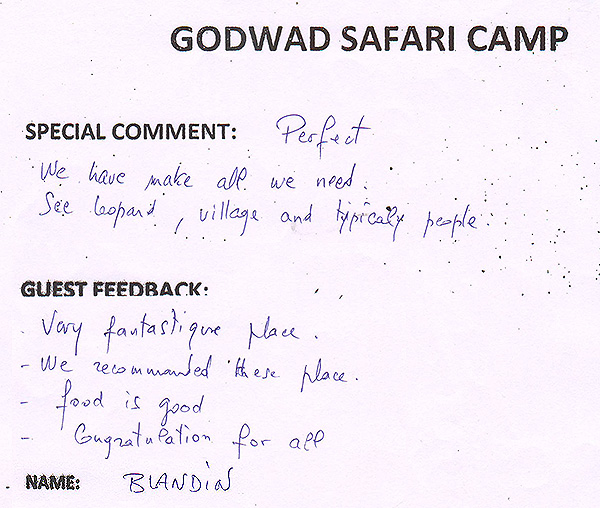 GODWAD SAFARI CAMP
SPECIAL COMMENT: Perfect
We have make all we need.
See leopard, village and typicaly people.
GUEST FEEDBACK:
- Very fantastique place.
- We recommanded these place.
- food is good
- Congratulation for all
NAME: BLANDIN